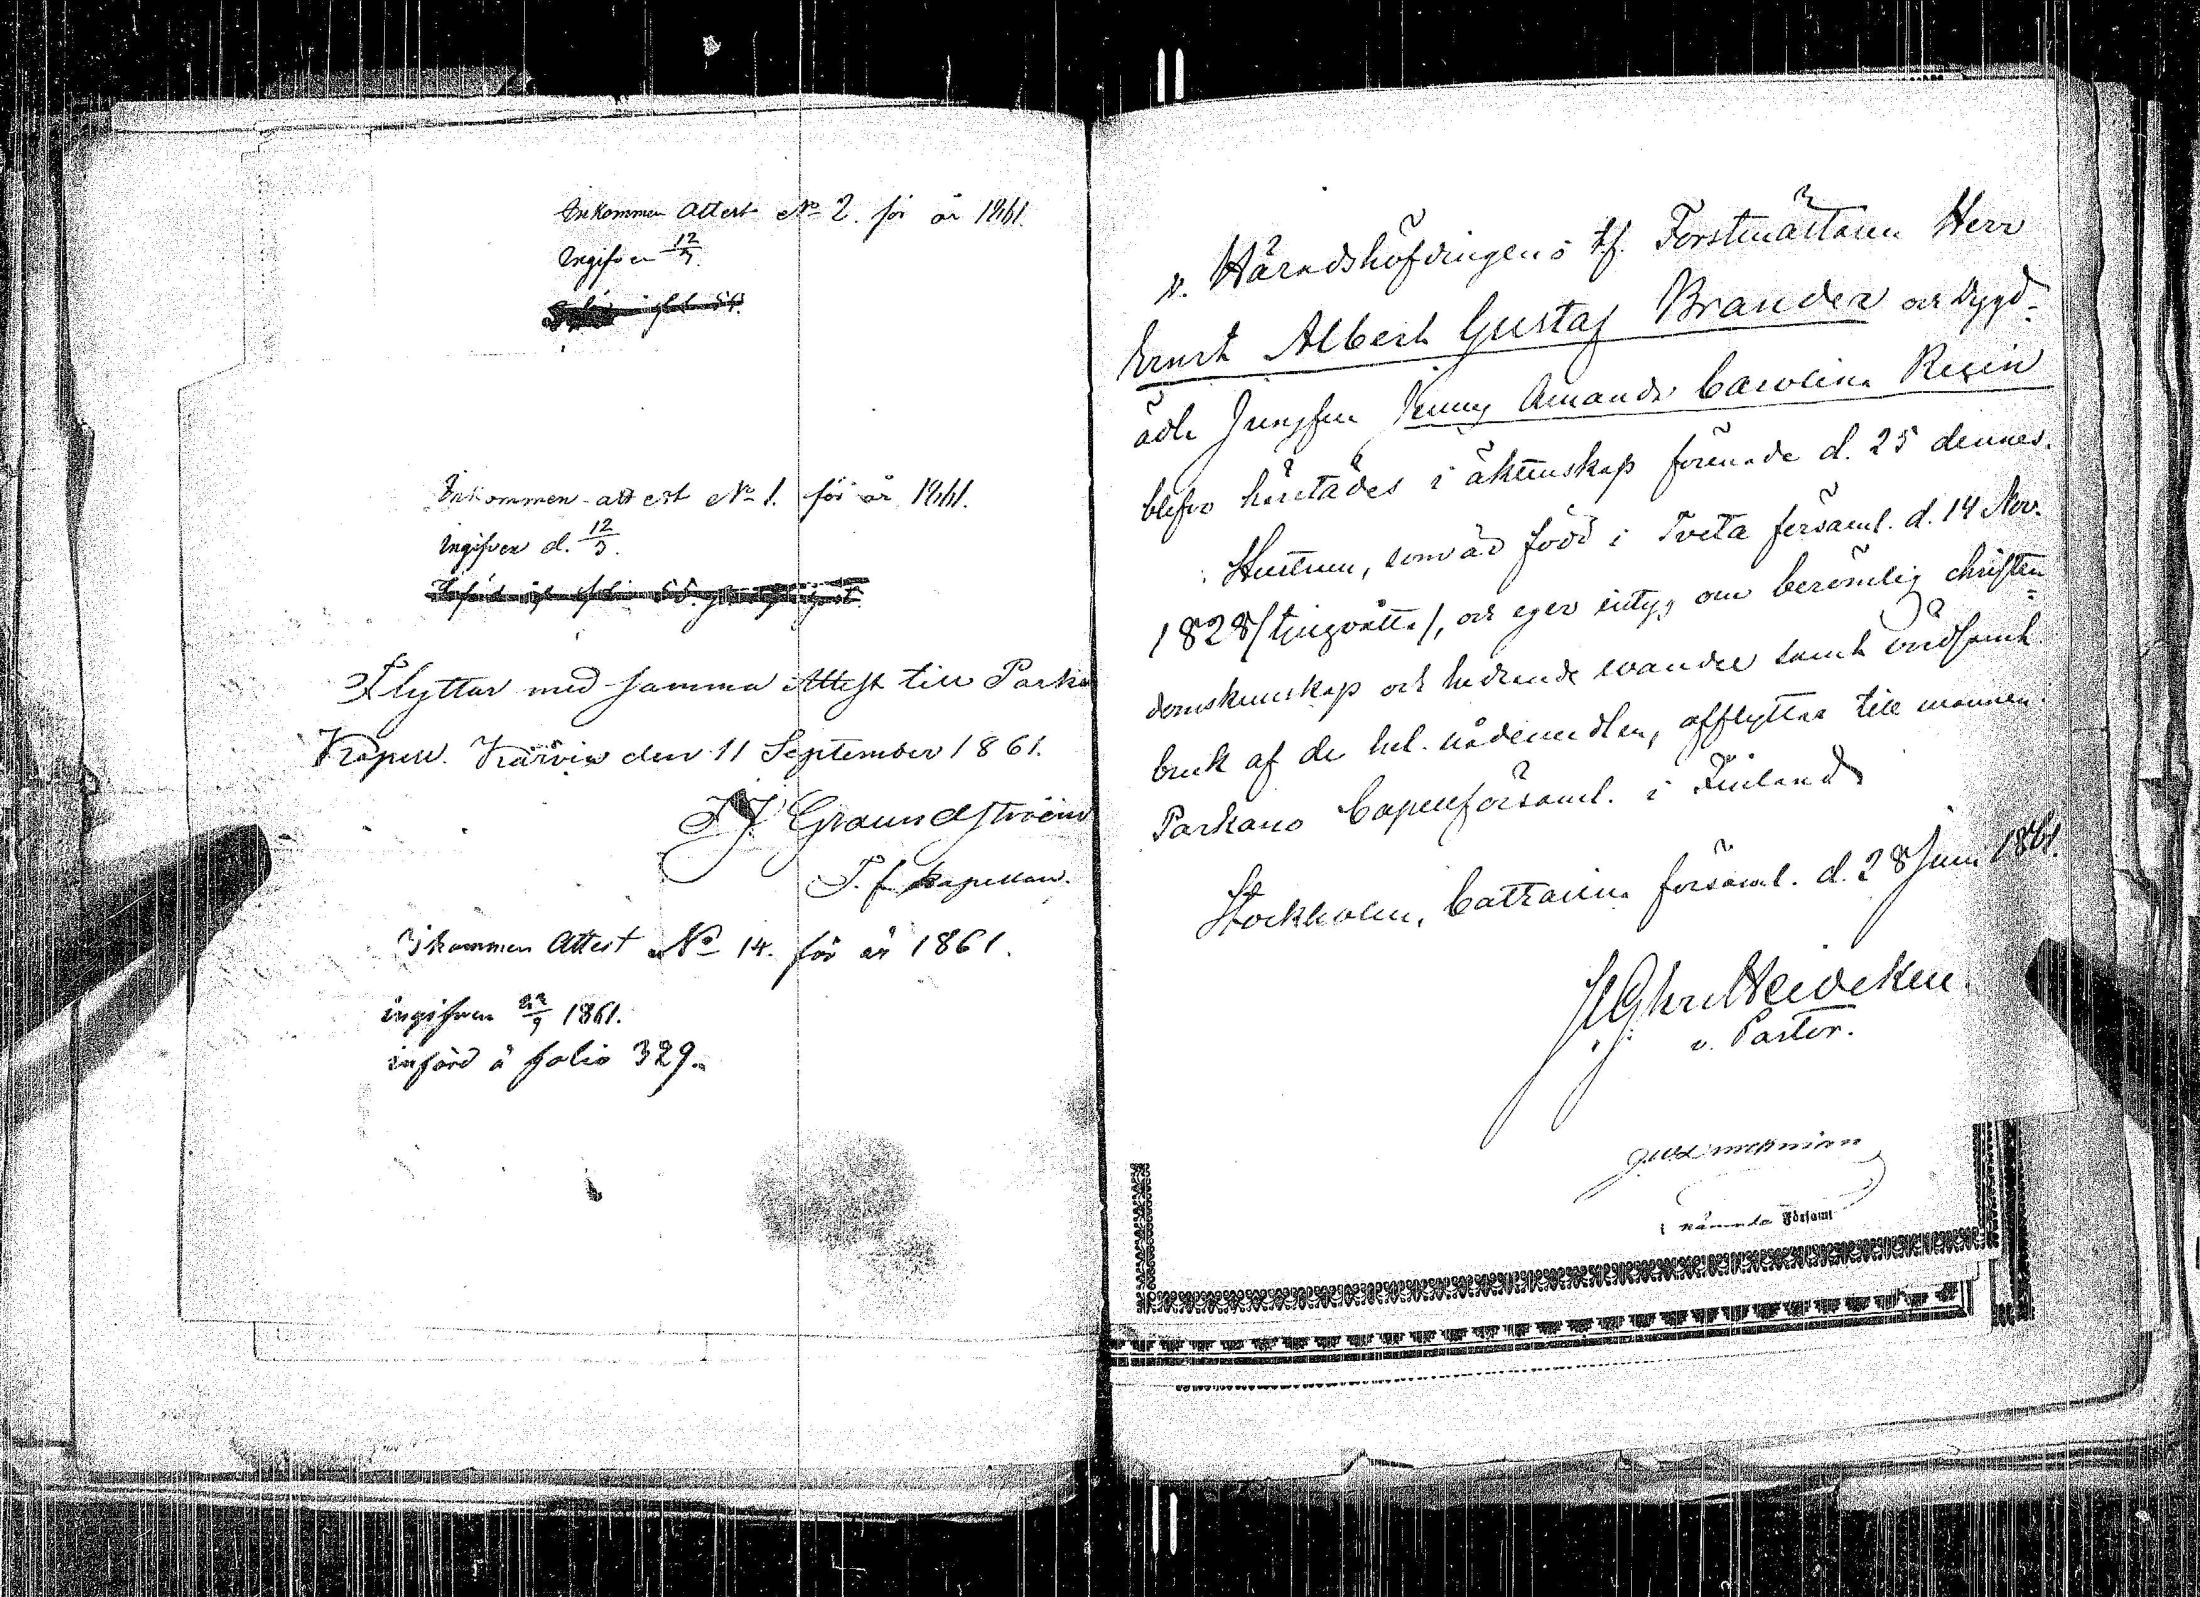 Inkommen Attest No 2. för år 1861.
Ingifven 12/3.
Inkommen attest No 1. för år 1861.
Ingifven d. 12/3.
Flyttar med samma Attest till Parka
Kapell. Karvia den 11 September 1861.
Graundström
T. f. Kapellan.
Inkommen Attest No 14. för år 1861.
ingifven 22/9 1861.
införd å folio 329.
v. Häradshöfdingen o tf. Forstmästaren Herr
Ernst Albert Gustaf Brander och dygd-
ädla Jungfru Jenny Amanda Carolina Regin
blefvo härstädes i äktenskap förenade d. 25 dennes.
Hustrun, som är född i Tveta församl. d. 14 Nov.
1828 /tjuguåtta/, och eger intyg om berömlig christen=
domskunskap och hedrande wandel samt vördsamt
bruk af de hel. nådemedlen, afflyttar till mannen i
Parkano Capellförsaml. i Finland
Stockholm, Catharina församl. d. 28 Juni 1861.
Heideken.
v. Pastor.
i nämnda Församl